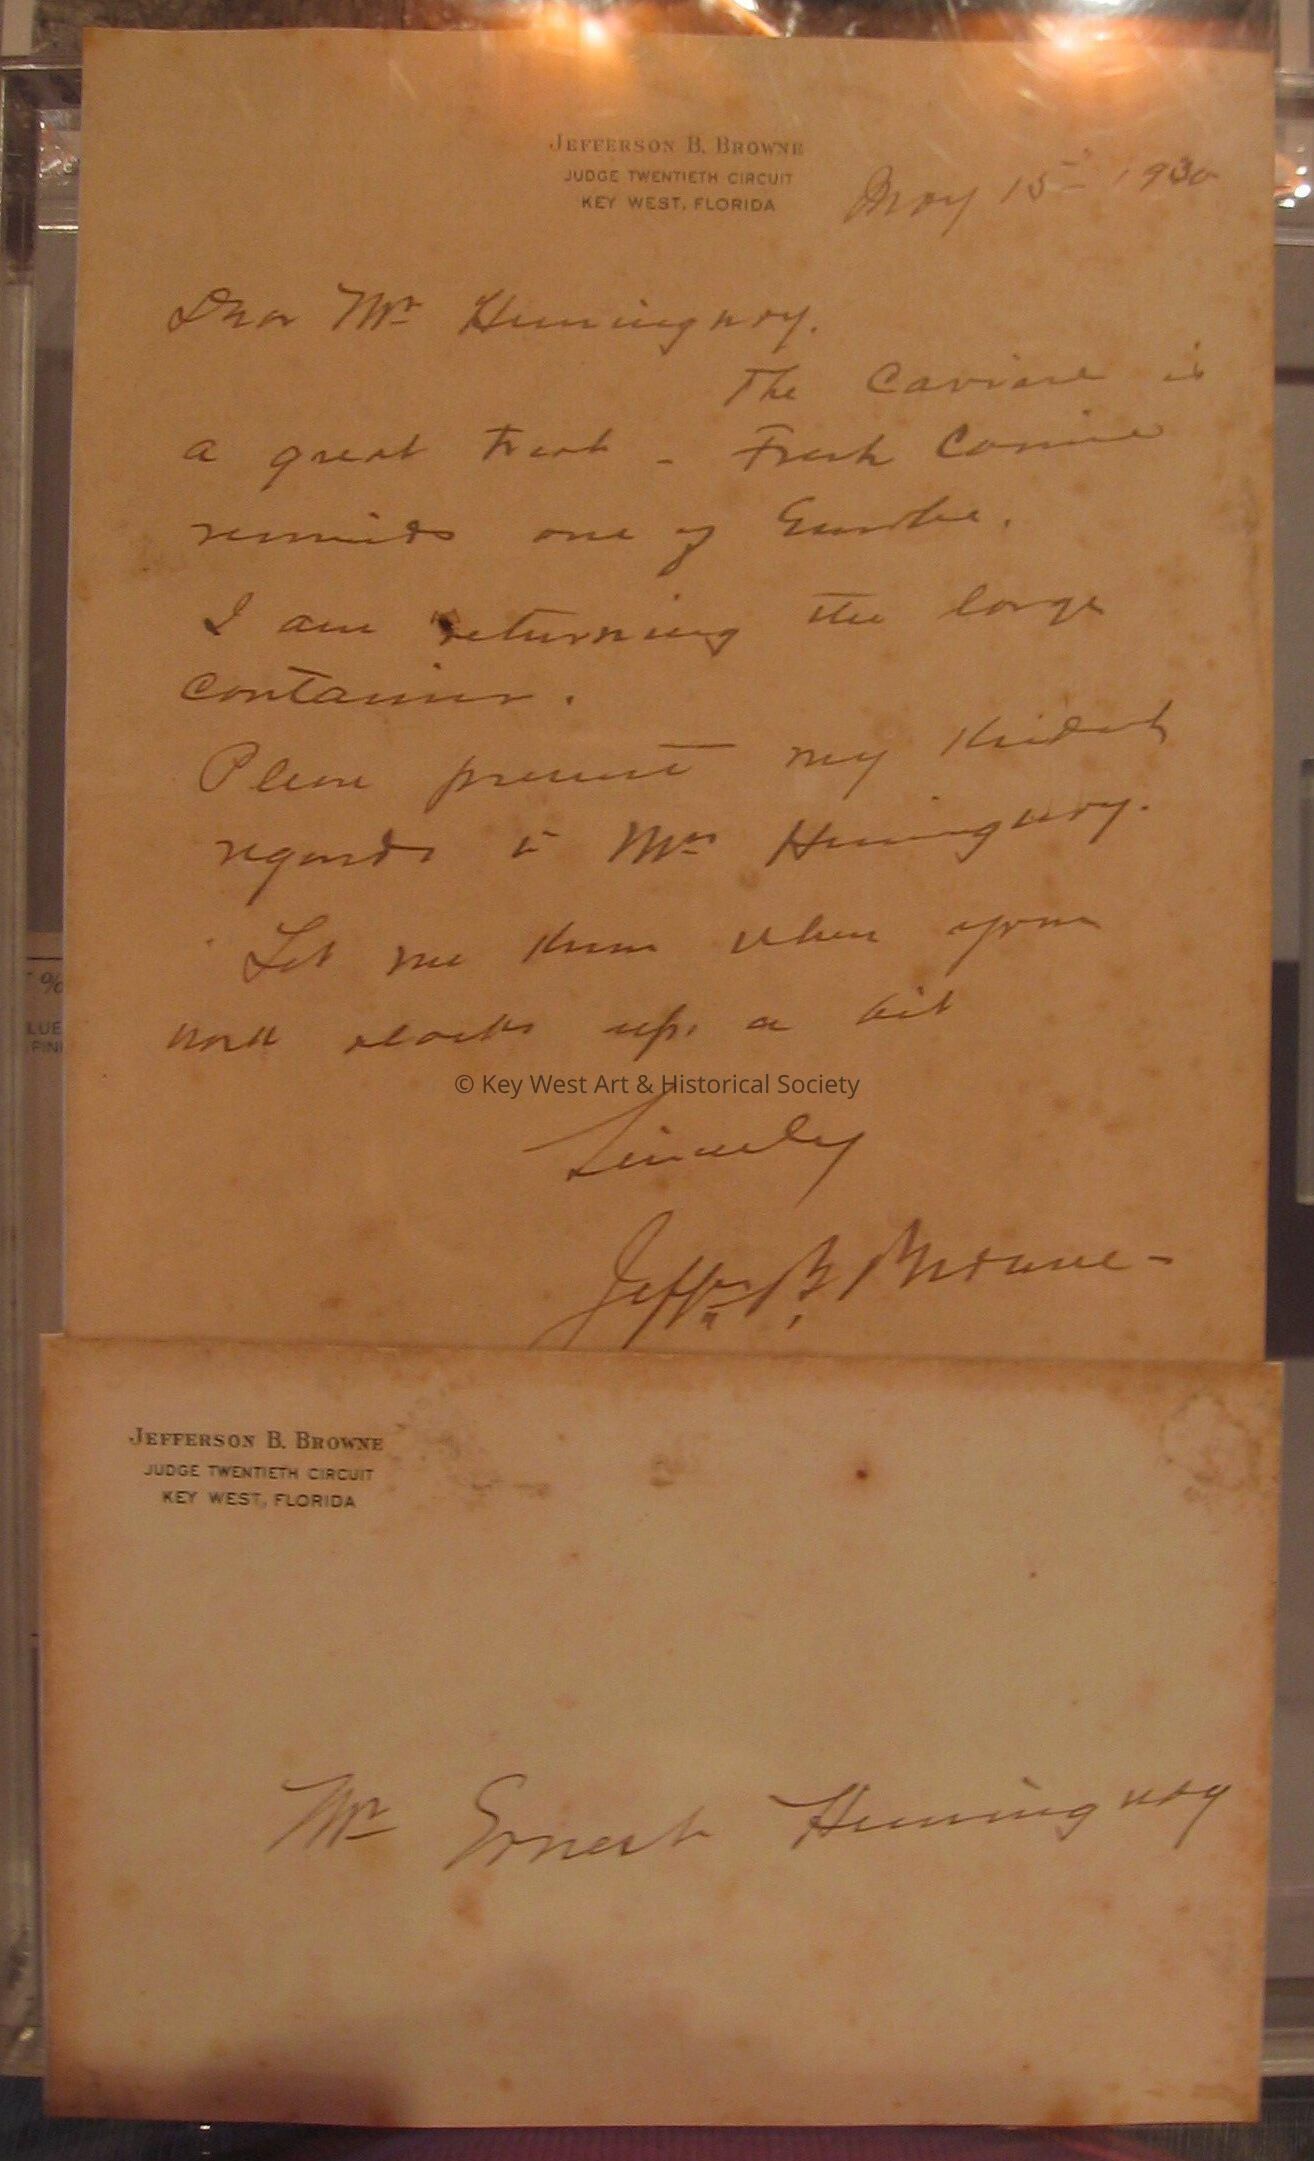 JEFFERSON B. BROWNE
JUDGE TWENTIETH CIRCUIT
KEY WEST, FLORIDA
May 15 1930
Dear Mr Hemingway.
The Caviare is
a great treat - Fresh Caviare
reminds one of
I am returning the large
container.
Please present my kindest
regards to Mrs Hemingway.
Let me know when your
work slacks up, a bit
© Key West Art & Historical Society
Sincerely
Jeffn B. Browne -
JEFFERSON B. BROWNE
JUDGE TWENTIETH CIRCUIT
KEY WEST, FLORIDA
Mr Ernest Hemingway
%
LUE
FIN